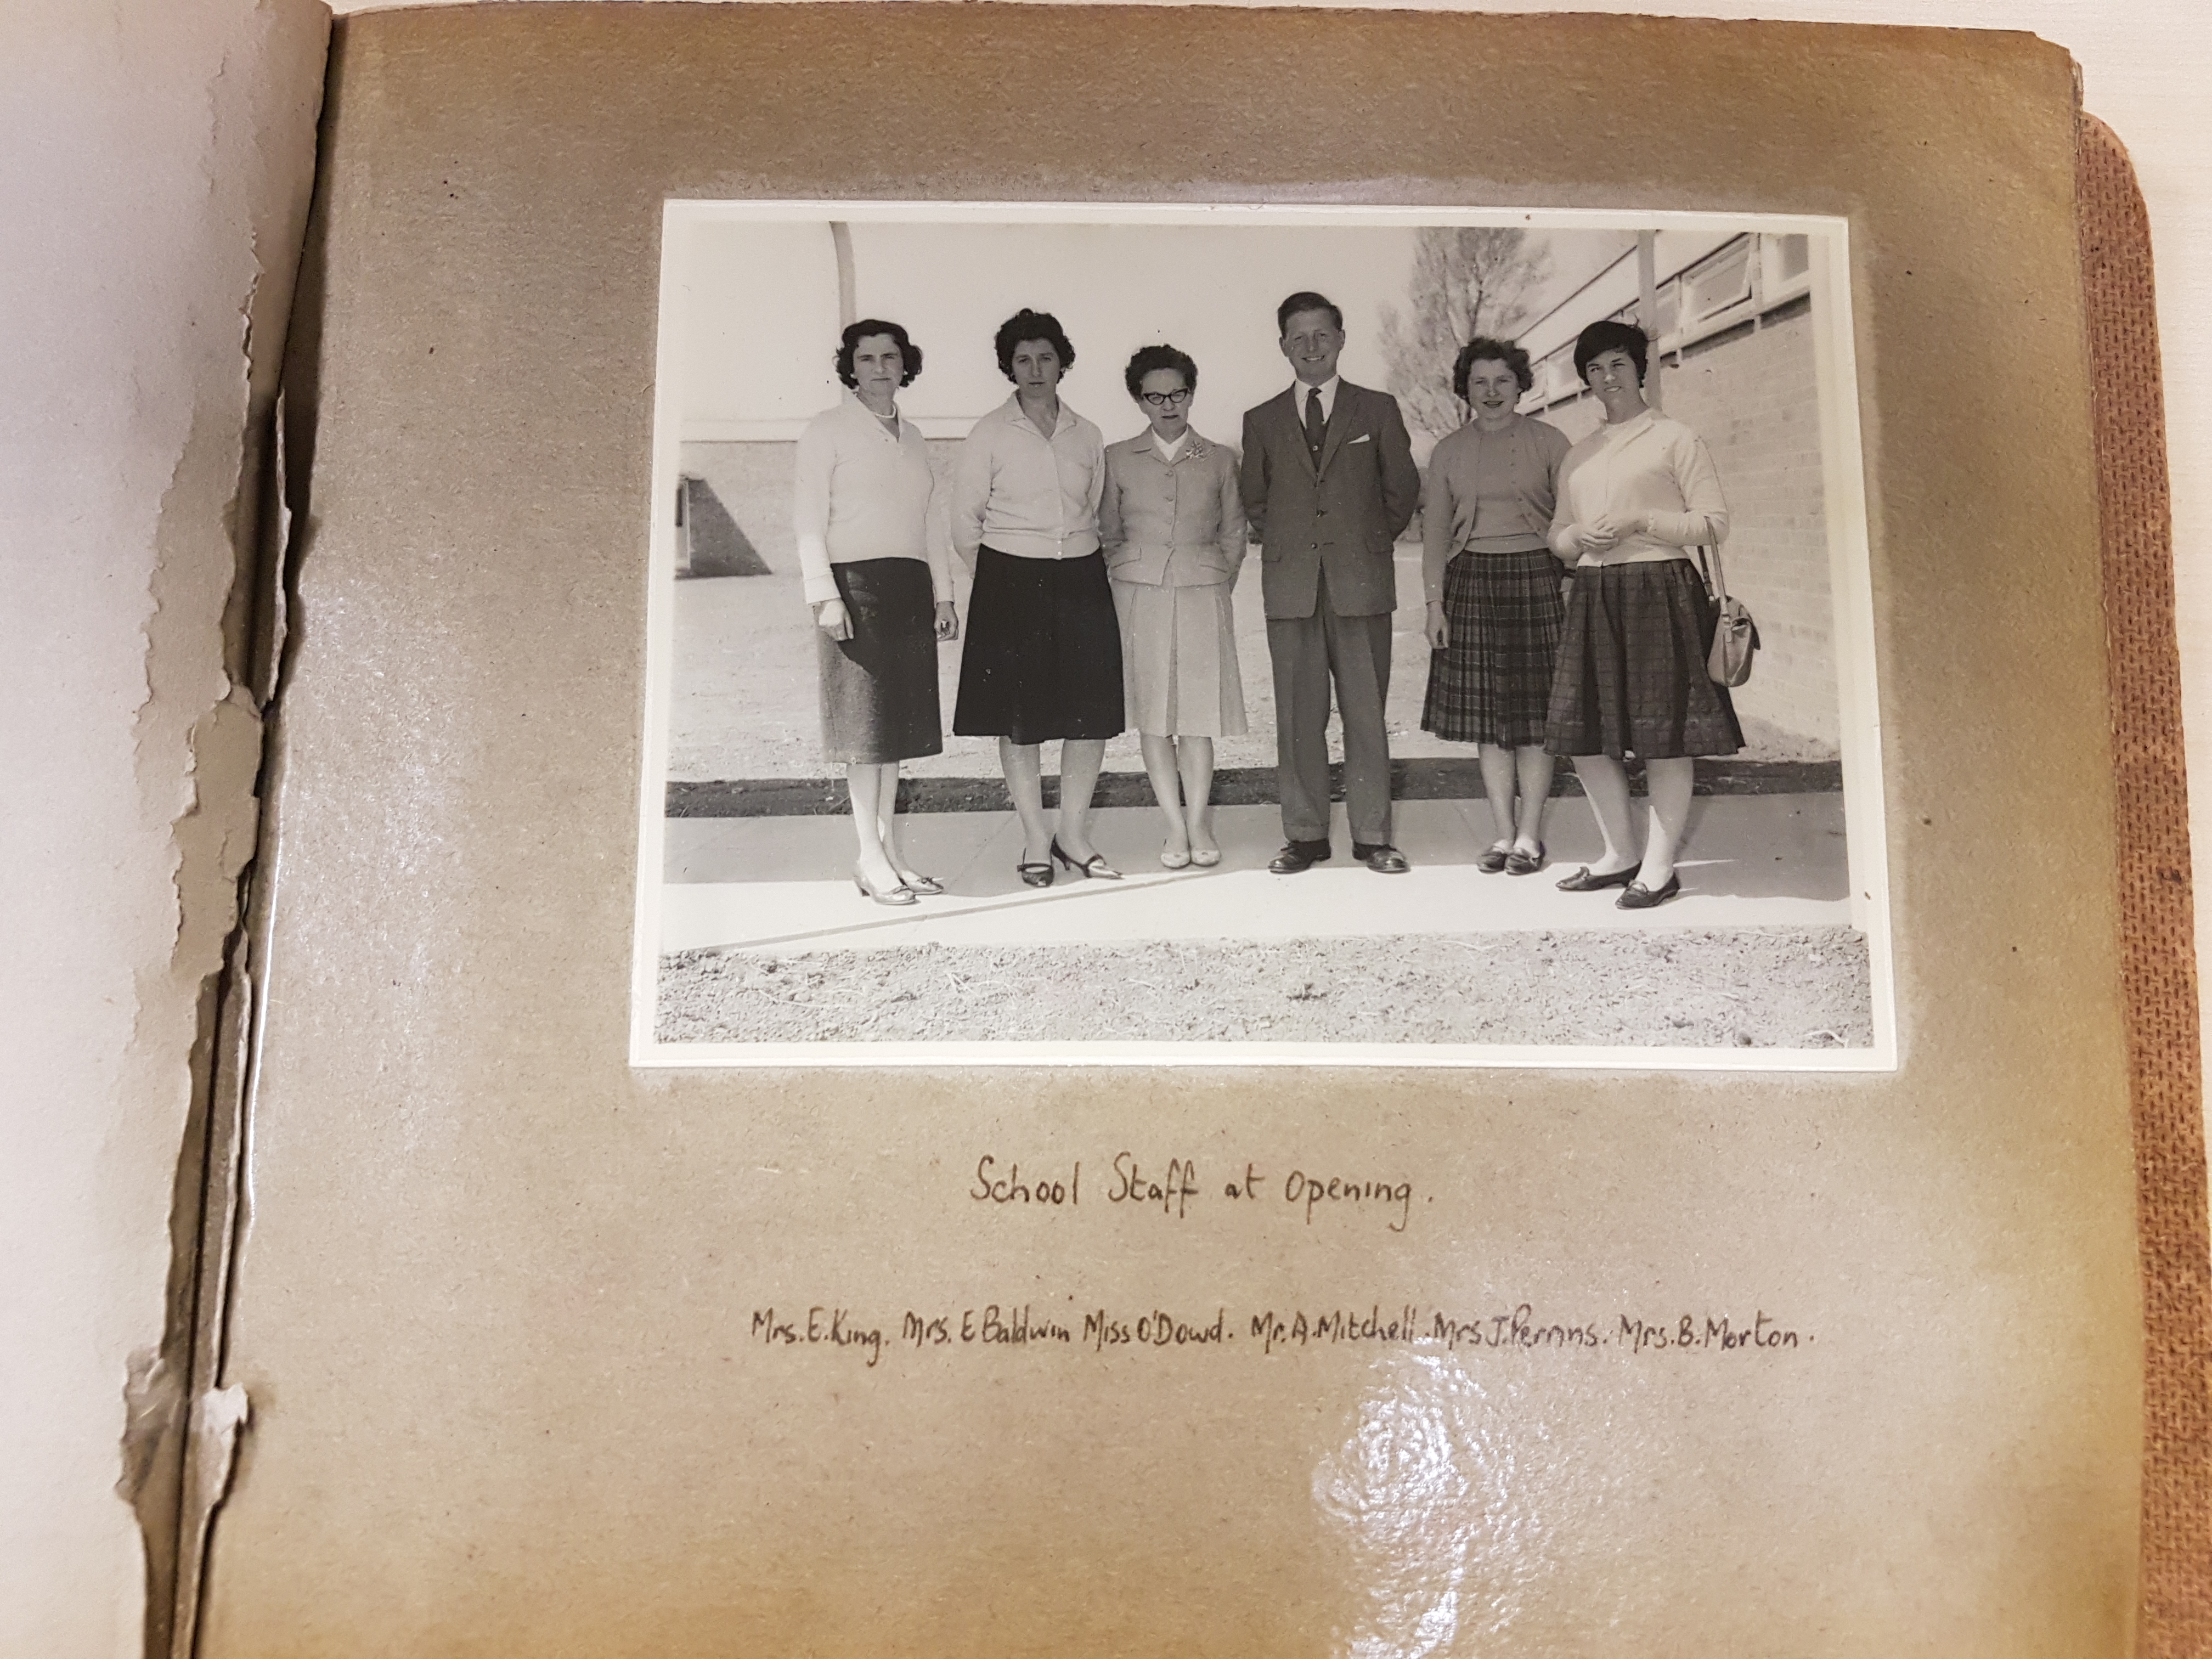 School Staff at Opening.
Mrs. E. King. Mrs. E Baldwin Miss O'Dowd. Mr. A. Mitchell. Mrs J. Perrins. Mrs. B. Morton.